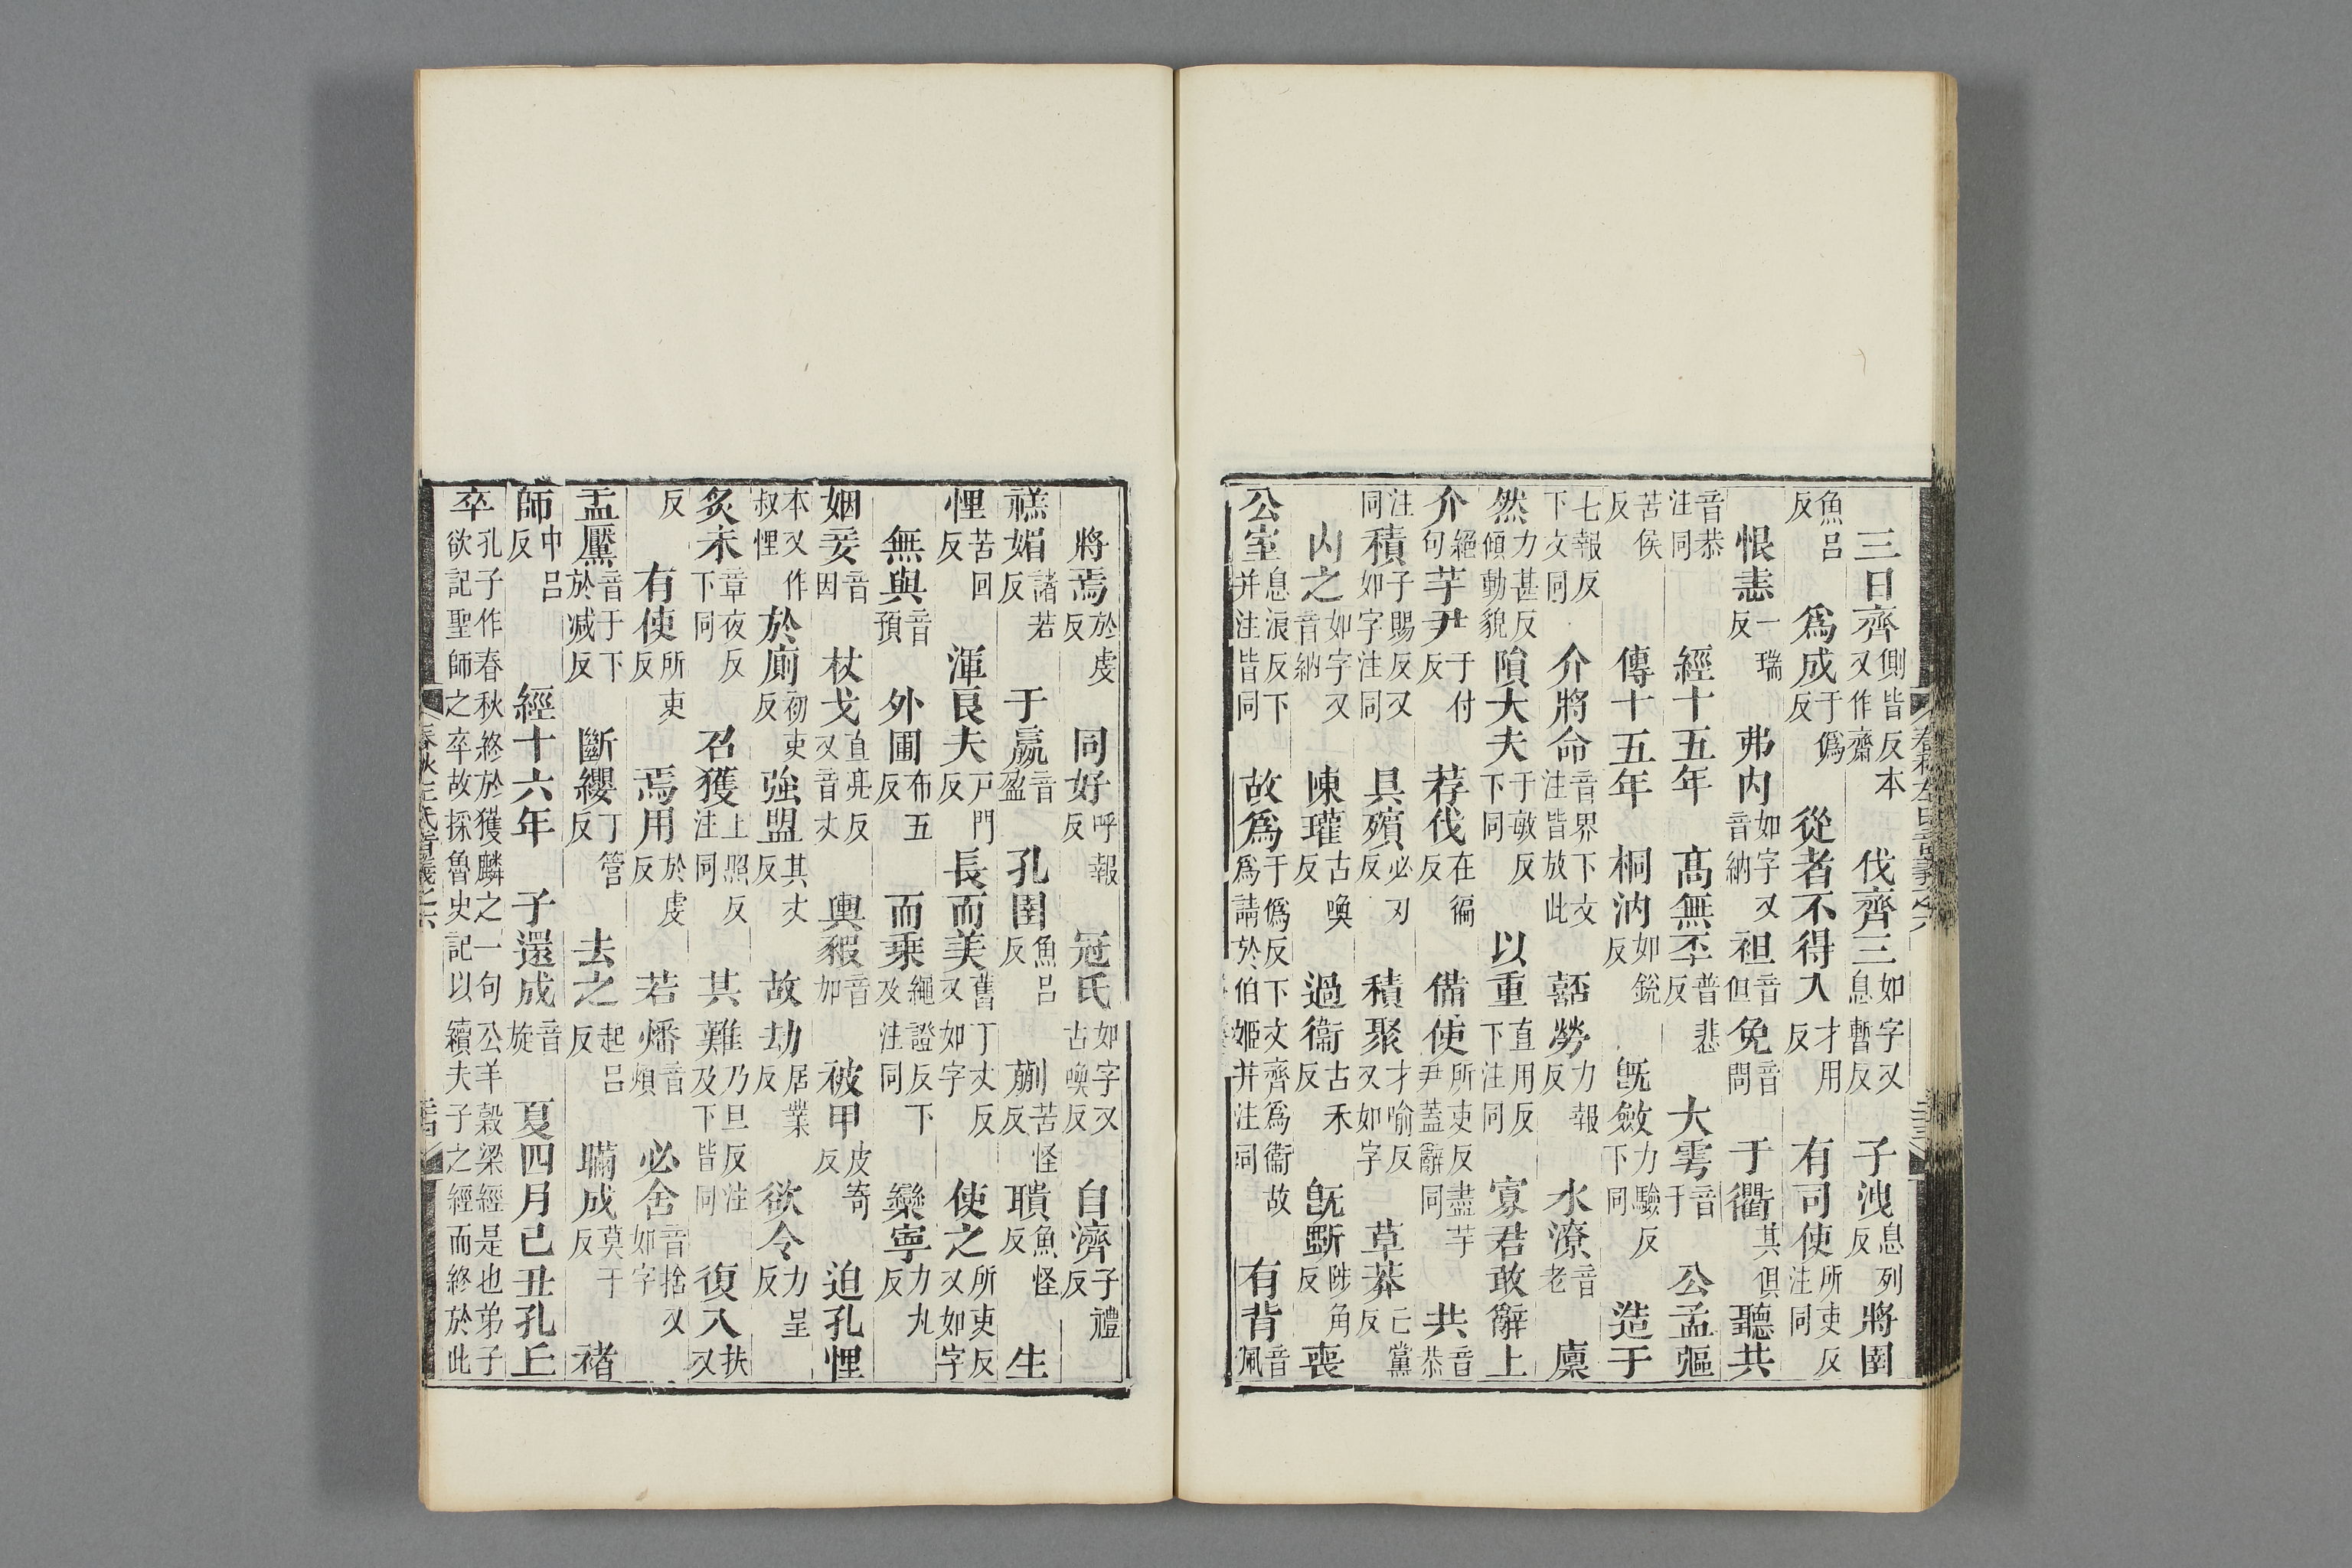 三日齊側皆反本又作齋 伐齊三如字又息暫反 子洩息列反 將圉
魚呂反 爲成于僞反 從者不得入才用反 有司使所吏反注同
恨恚一瑞反 弗内如字又音納 袒音但 免音問 于衢其俱反 聽共
音恭注同 經十五年 髙無㔻普悲反 大雩音于 公孟彄
苦侯反 傳十五年 桐汭如銳反 旣斂力驗反下同 造于
七報反下文同 介將命音界下文注皆放此 嚭勞力報反 水潦音老 廪
然力甚反傾動貌 隕大夫于敏反下同 以重直用反下注同 寡君敢辭上
介絕句 芋尹于付反 荐伐在徧反 備使所吏反盡芋尹蓋辭同 共音恭
注同 積子賜反又如字注同 具殯必刃反 積聚才喻反又如字 草莽亡黨反
内之如字又音納 陳瓘古喚反 過衞古禾反 旣斵陟角反 喪
公室息浪反下并注皆同 故爲于僞反下文齊爲衞故爲請於伯姬并注同 有背音佩
春秋左氏音義之六
將焉於虔反 同好呼報反 冠氏如字又古喚反 自濟子禮反
禚媚諸若反 于嬴音盈 孔圉魚呂反 蒯苦怪反 聵魚怪反 生
悝苦回反 渾良夫戸門反 長而美舊丁丈反又如字 使之所吏反又如字
無與音預 外圃布五反 而乘繩證反下及注同 欒寧力丸反
姻妾音因 杖戈直亮反又音丈 輿豭音加 被甲皮寄反 迫孔悝
本又作叔悝 於廁初吏反 強盟其丈反 故劫居業反 欲令力呈反
炙未章夜反下同 召獲上照反注同 其難乃旦反注及下皆同 復入扶又
反 有使所吏反 焉用於虔反 若燔音煩 必舍音捨又如字
盂黶音于下於減反 斷纓丁管反 去之起呂反 瞞成莫干反 褚
師中呂反 經十六年 子還成音旋 夏四月己丑孔丘
卒孔子作春秋終於獲麟之一句公羊榖梁經是也弟子欲記聖師之卒故採魯史記以續夫子之經而終於此
春秋左氏音義之六